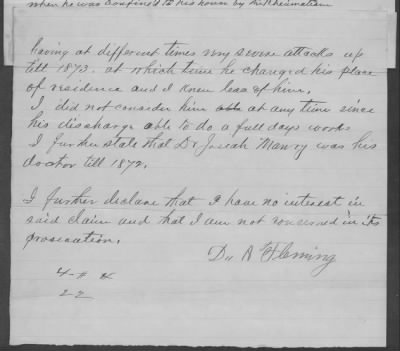 when he was confined to his house by Rheumatism
having at different times very severe attacks up
till 1873. at which time he changed his place
of residence and I knew less of him.
I did not consider him able at any time since
his discharge able to do a full days works
I further state that Dr Josiah Manry was his
doctor till 1872.
I further declare that I have no interest in
said claim and that I am not concerned in its
prosecution.
A Fleming
22